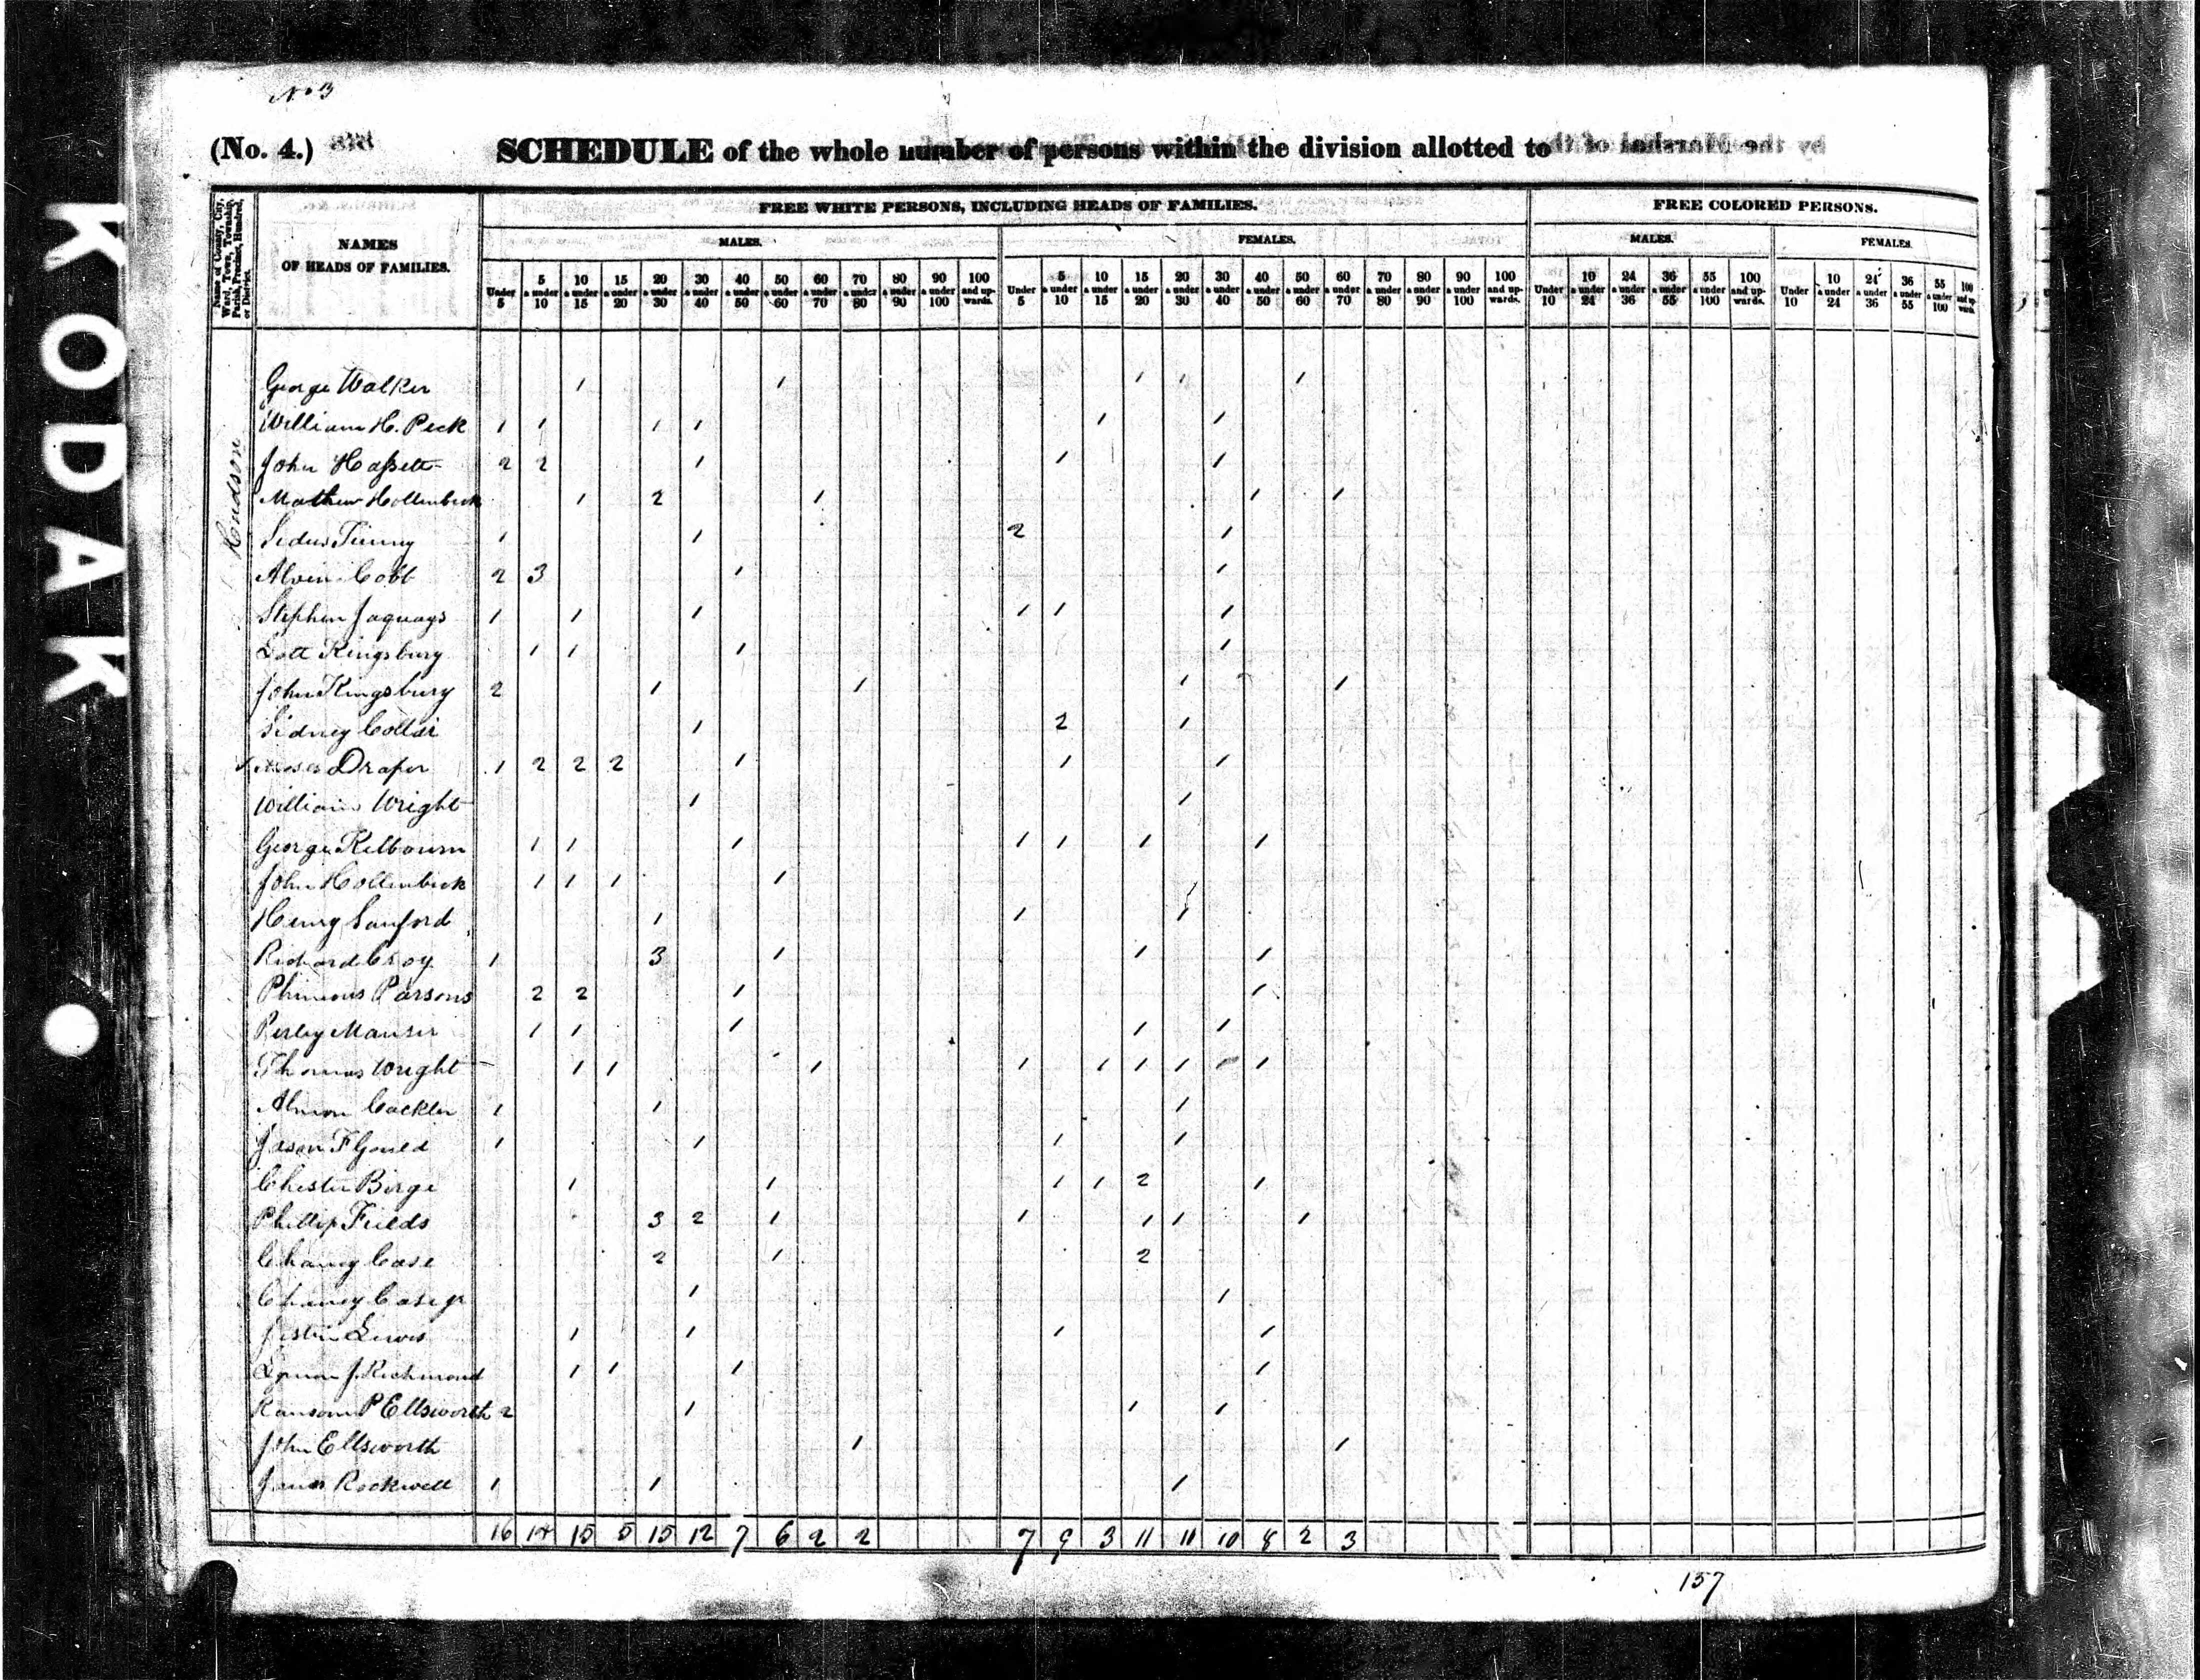 No 3
(No. 4.) SCHEDULE of the whole number of persons within the division allotted to
by the Marshal of the
KODAK
Name of County, City, Ward, Town, Township, Parish, Precinct, Hundred, or District.
NAMES OF HEADS OF FAMILIES.
FREE WHITE PERSONS, INCLUDING HEADS OF FAMILIES.
FREE COLORED PERSONS.
MALES. FEMALES. MALES. FEMALES.
Under 5 | 5 & under 10 | 10 & under 15 | 15 & under 20 | 20 & under 30 | 30 & under 40 | 40 & under 50 | 50 & under 60 | 60 & under 70 | 70 & under 80 | 80 & under 90 | 90 & under 100 | 100 and up-wards. | Under 5 | 5 & under 10 | 10 & under 15 | 15 & under 20 | 20 & under 30 | 30 & under 40 | 40 & under 50 | 50 & under 60 | 60 & under 70 | 70 & under 80 | 80 & under 90 | 90 & under 100 | 100 and up-wards. | Under 10 | 10 & under 24 | 24 & under 36 | 36 & under 55 | 55 & under 100 | 100 and up-wards. | Under 10 | 10 & under 24 | 24 & under 36 | 36 & under 55 | 55 & under 100 | 100 and up-wards.
Hudson
George Walker 1 1 1 1 1
William H. Peck 1 1 1 1 1 1
John Hassett 2 2 1 1 1
Mathew Hollenbeck 1 2 1 1 1
1 1 2 1
Alvin Cobb 2 3 1 1
Stephen Jaquays 1 1 1 1 1 1
Lott Kingsbury 1 1 1 1
John Kingsbury 2 1 1 1 1
Sidney 1 2 1
Moses Draper 1 2 2 2 1 1 1
William Wright 1 1
George Kilbourn 1 1 1 1 1 1 1
John Hollenbeck 1 1 1 1
Henry Sanford 1 1 1
Richard Croy 1 3 1 1 1
Parsons 2 2 1 1
Perley Manser 1 1 1 1 1
Thomas Wright 1 1 1 1 1 1 1 1
Almon Cackler 1 1 1
Jason F Gould 1 1 1 1
Chester Birge 1 1 1 1 2 1
Phillip Fields 3 2 1 1 1 1 1
Chancy Case 2 1 2
Chancy Case jr 1 1
Lewis 1 1 1 1
Lyman J. Richmond 1 1 1 1
Ransom P Ellsworth 2 1 1 1
John Ellsworth 1 1
James Rockwell 1 1 1
16 14 15 5 15 12 7 6 2 2 7 9 3 11 11 10 8 2 3
157